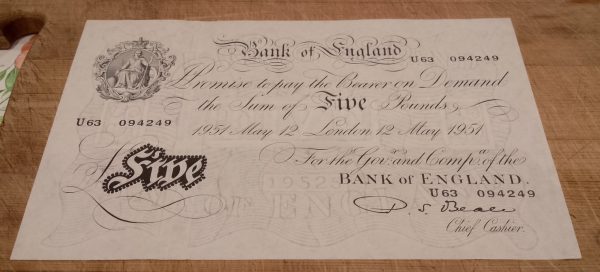 Bank of England
U63 094249
I Promise to pay the Bearer on Demand
the Sum of Five Pounds
U63 094249
1951 May 12 London 12 May 1951
For the Gov.r and Comp.a of the
Five
BANK of ENGLAND.
U63 094249
P. S. Beale
Chief Cashier.